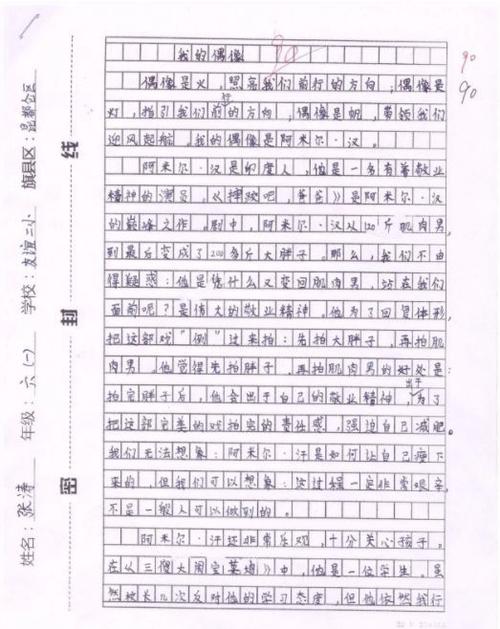 我的偶像
90
90
90
偶像是火，照亮我们前行的方向；偶像是
灯，指引我们前行的方向；偶像是帆，带领我们
迎风起航。我的偶像是阿米尔·汉。
阿米尔·汉是印度人，他是一名有着敬业
精神的演员。《摔跤吧，爸爸》是阿米尔·汉
的巅峰之作。剧中，阿米尔·汉从120斤肌肉男，
到最后变成了200多斤大胖子。那么，我们不由
得疑惑：他是凭什么又变回肌肉男，站在我们
面前呢？是伟大的敬业精神。他为了回复体形，
把这部戏“倒”过来拍：先拍大胖子，再拍肌
肉男。他觉得先拍胖子，再拍肌肉男的好处是：
拍完胖子后，他会出于自己的敬业精神，出于为了
把这部完美的戏拍完的责任感，强迫自己减肥。
我们无法想象：阿米尔·汗是如何让自己瘦下
来的，但我们可以想象：这过程一定非常艰辛，
不是一般人可以做到的。
阿米尔·汗还非常乐观，十分关心孩子。
在《三傻大闹宝莱坞》中，他是一位学生。虽
然校长几次反对他的学习态度，但他依然我行
姓名：张涛 年级：六（一） 学校：友谊二小 旗县区：昆都仑区
密 封 线